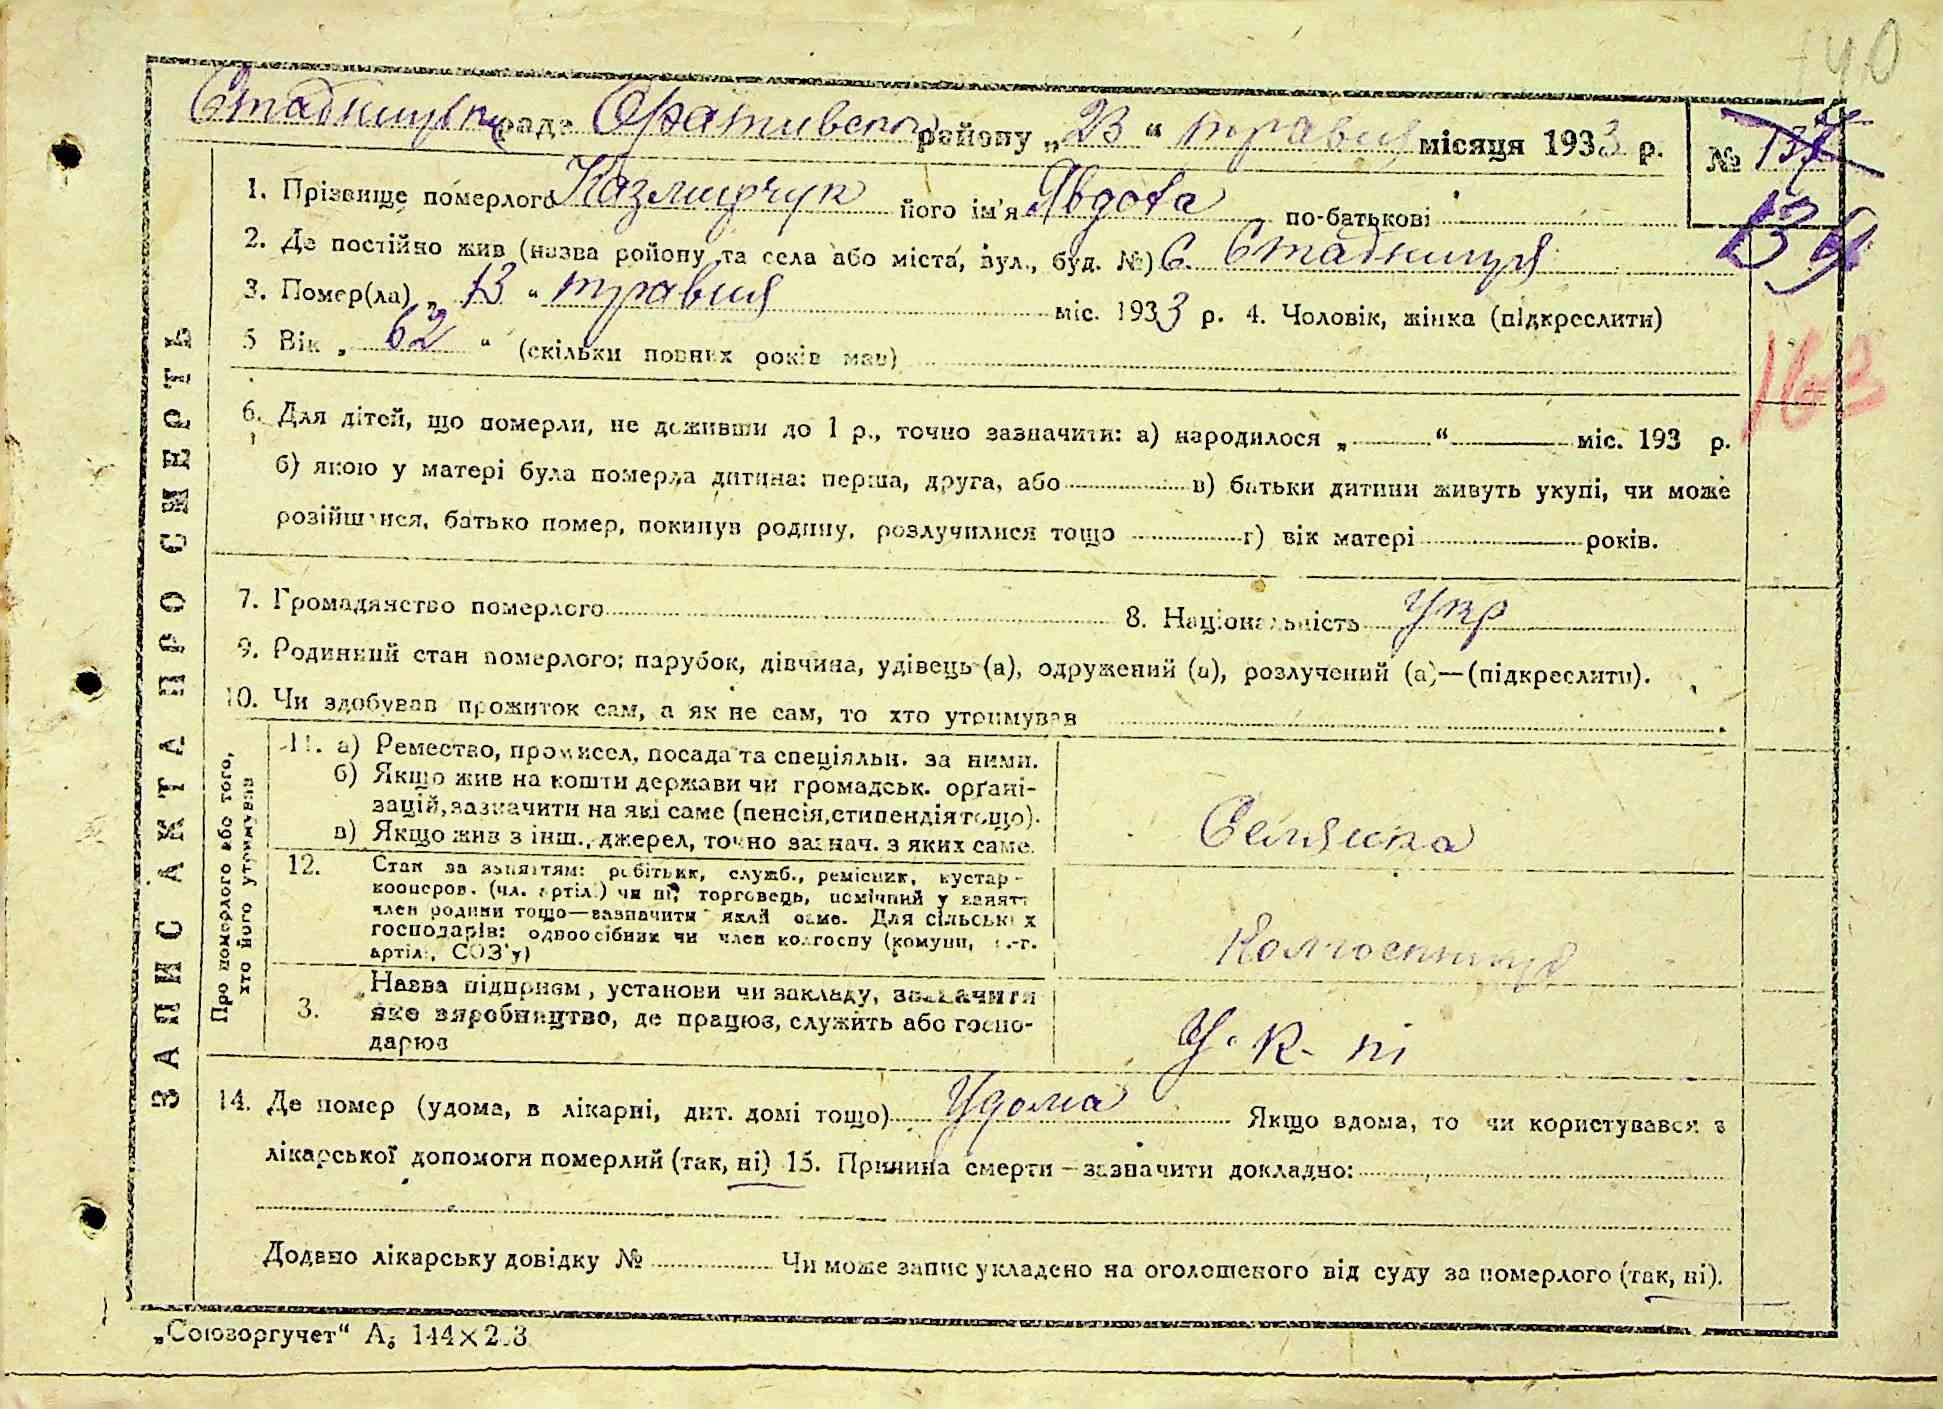 140
Стадницька рада Оратівського району „23“ травня місяця 1933 р. № 137
139
1. Прізвище померлого Казмирчук його ім'я Явдоха по-батькові
2. Де постійно жив (назва району та села або міста, вул., буд. №) с. Стадниця
3. Помер(ла) „13“ травня міс. 1933 р. 4. Чоловік, жінка (підкреслити)
5 Вік „62“ (скільки повних років мав)
6. Для дітей, що померли, не доживши до 1 р., точно зазначити: а) народилося „ “ міс. 193 р.
б) якою у матері була померла дитина: перша, друга, або в) батьки дитини живуть укупі, чи може
розійшлися, батько помер, покинув родину, розлучилися тощо г) вік матері років.
7. Громадянство померлого 8. Національність Укр
9. Родинний стан померлого: парубок, дівчина, удівець (а), одружений (а), розлучений (а)—(підкреслити).
10. Чи здобував прожиток сам, а як не сам, то хто утримував
ЗАПИС АКТА ПРО СМЕРТЬ
Про померлого або того,
хто його утримував
11. а) Ремество, промисел, посада та спеціяльн. за ними.
б) Якщо жив на кошти держави чи громадськ. орґані-
зацій, зазначити на які саме (пенсія, стипендія тощо).
в) Якщо жив з інш. джерел, точно зазнач. з яких саме.
Селянка
12. Стан за заняттям: робітник, служб., ремісник, кустар-
кооперов. (чл. артілі) чи ні, торговець, помічний у занятт
член родини тощо—зазначити який саме. Для сільських
господарів: одноосібник чи член колгоспу (комуни, с.-г.
артілі, СОЗ'у)
Колгоспниця
3. Назва підприєм, установи чи закладу, зазначити
яке виробництво, де працює, служить або госпо-
дарює
У. К-ні
14. Де помер (удома, в лікарні, дит. домі тощо) Удома Якщо вдома, то чи користувався з
лікарської допомоги померлий (так, ні) 15. Причина смерти—зазначити докладно:
Додано лікарську довідку № Чи може запис укладено на оголошеного від суду за померлого (так, ні).
„Союзоргучет“ А₅ 144×203